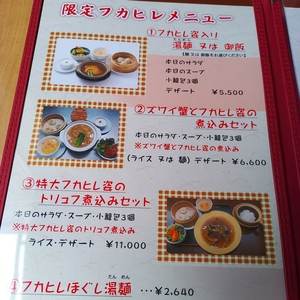 限定フカヒレメニュー
①フカヒレ姿入り
たんめん
湯麺 又は 御飯
【麺 又は 御飯をお選びください】
本日のサラダ
本日のスープ
小籠包3個
デザート ¥5,500
②ズワイ蟹とフカヒレ姿の
煮込みセット
本日のサラダ・スープ・小籠包3個
※ズワイ蟹とフカヒレ姿の煮込み
(ライス 又は 麺) デザート ¥6,600
③特大フカヒレ姿の
トリュフ煮込みセット
本日のサラダ・スープ・小籠包3個
※特大フカヒレ姿のトリュフ煮込み
ライス・デザート ¥11,000
たん めん
④フカヒレほぐし湯麺 ・・・¥2,640